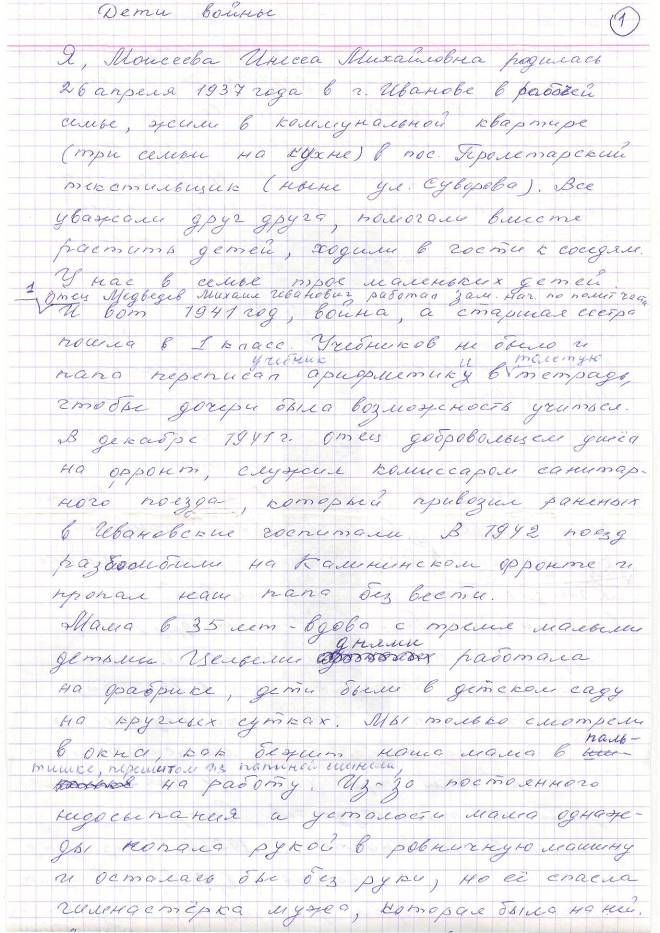 Дети войны
1
Я, Моисеева Инесса Михайловна родилась
26 апреля 1937 года в г. Иванове в рабочей
семье, жили в коммунальной квартире
(три семьи на кухне) в пос. Пролетарский
текстильщик (ныне ул. Суворова). Все
уважали друг друга, помогали вместе
растить детей, ходили в гости к соседям.
У нас в семье трое маленьких детей.
1 Отец Медведев Михаил Иванович работал зам. нач. по полит части
И вот 1941 год, война, а старшая сестра
пошла в 1 класс. Учебников не было и
учебник и толстую
папа переписал арифметику в тетрадь,
чтобы дочери была возможность учиться.
В декабре 1941 г. отец добровольцем ушёл
на фронт, служил комиссаром санитар-
ного поезда, который привозил раненых
в Ивановские госпитали. В 1942 поезд
разбомбили на Калининском фронте и
пропал наш папа без вести.
Мама в 35 лет - вдова с тремя малыми
днями
детьми. Целыми работала
на фабрике, дети были в детском саду
на круглых сутках. Мы только смотрели
паль-
в окна, как бежит наша мама в
тишке, перешитом из папиной шинели,
на работу. Из-за постоянного
недосыпания и усталости мама однаж-
ды попала рукой в ровничную машину
и осталась бы без руки, но её спасла
гимнастёрка мужа, которая была на ней.